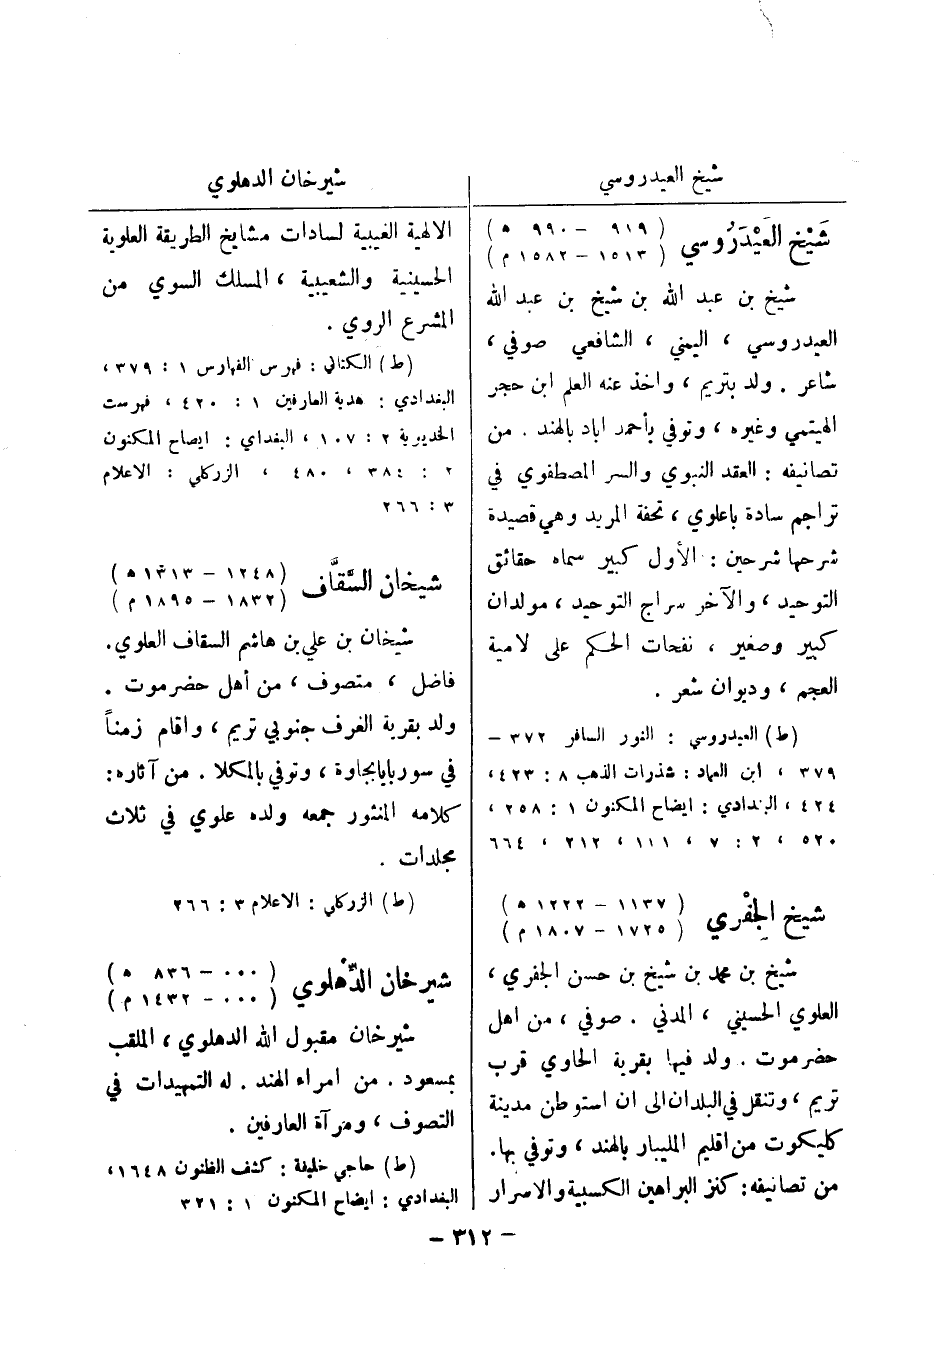 شيخ العيدروسي
شَيْخ العَيْدَرُوسي
( ٩١٩ - ٩٩٠ ه )
( ١٥١٣ - ١٥٨٢ م )
شيخ بن عبد الله بن شيخ بن عبد الله
العيدروسي ، اليمني ، الشافعي صوفي ،
شاعر . ولد بتريم ، واخذ عنه العلم ابن حجر
الهيتمي وغيره ، وتوفي بأحمد اباد بالهند . من
تصانيفه : العقد النبوي والسر المصطفوي في
تراجم سادة باعلوي ، تحفة المريد وهي قصيدة
شرحها شرحين : الأول كبير سماه حقائق
التوحيد ، والآخر سراج التوحيد ، مولدان
كبير وصغير ، نفحات الحكم على لامية
العجم ، وديوان شعر .
(ط) العيدروسي : النور السافر ٣٧٢ -
٣٧٩ ، ابن العماد : شذرات الذهب ٨ : ٤٢٣،
٤٢٤ ، البغدادي : ايضاح المكنون ١ : ٢٥٨ ،
٥٢٠ ، ٢ : ٧ ، ١١١ ، ٢١٢ ، ٦٦٤
شيخ الجِفْري
( ١١٣٧ - ١٢٢٢ ه )
( ١٧٢٥ - ١٨٠٧ م )
شيخ بن محمد بن شيخ بن حسن الجفري ،
العلوي الحسيني ، المدني . صوفي ، من اهل
حضرموت . ولد فيها بقرية الحاوي قرب
تريم ، وتنقل في البلدان الى ان استوطن مدينة
كليكوت من اقليم المليبار بالهند ، وتوفي بها.
من تصانيفه: كنز البراهين الكسبية والاسرار
شيرخان الدهلوي
الالهية الغيبية لسادات مشايخ الطريقة العلوية
الحسينية والشعيبية ، المسلك السوي من
المشرع الروي .
(ط) الكتاني : فهرس الفهارس ١ : ٣٧٩ ،
البغدادي : هدية العارفين ١ : ٤٢٠ ، فهرست
الخديوية ٢ : ١٠٧ ، البغداي : ايضاح المكنون
٢ : ٣٨٤ ، ٤٨٠ ، الزركلي : الاعلام
٣ : ٢٦٦
شيخان السَّقَّاف
(١٢٤٨ - ١٣١٣ ه )
(١٨٣٢ - ١٨٩٥ م )
شيخان بن علي بن هاشم السقاف العلوي.
فاضل ، متصوف ، من أهل حضرموت .
ولد بقرية الغرف جنوبي تريم ، واقام زمناً
في سورابايابجاوة ، وتوفي بالمكلا . من آثاره:
كلامه المنثور جمعه ولده علوي في ثلاث
مجلدات .
(ط) الزركلي : الاعلام ٣ : ٢٦٦
شيرخان الدِّهْلوي
( ٠٠٠ - ٨٣٦ ه )
( ٠٠٠ - ١٤٣٢ م )
شيرخان مقبول الله الدهلوي ، الملقب
بمسعود . من امراء الهند . له التمهيدات في
التصوف ، ومرآة العارفين .
(ط) حاجي خليفة : كشف الظنون ١٦٤٨،
البغدادي : ايضاح المكنون ١ : ٣٢١
- ٣١٢ -